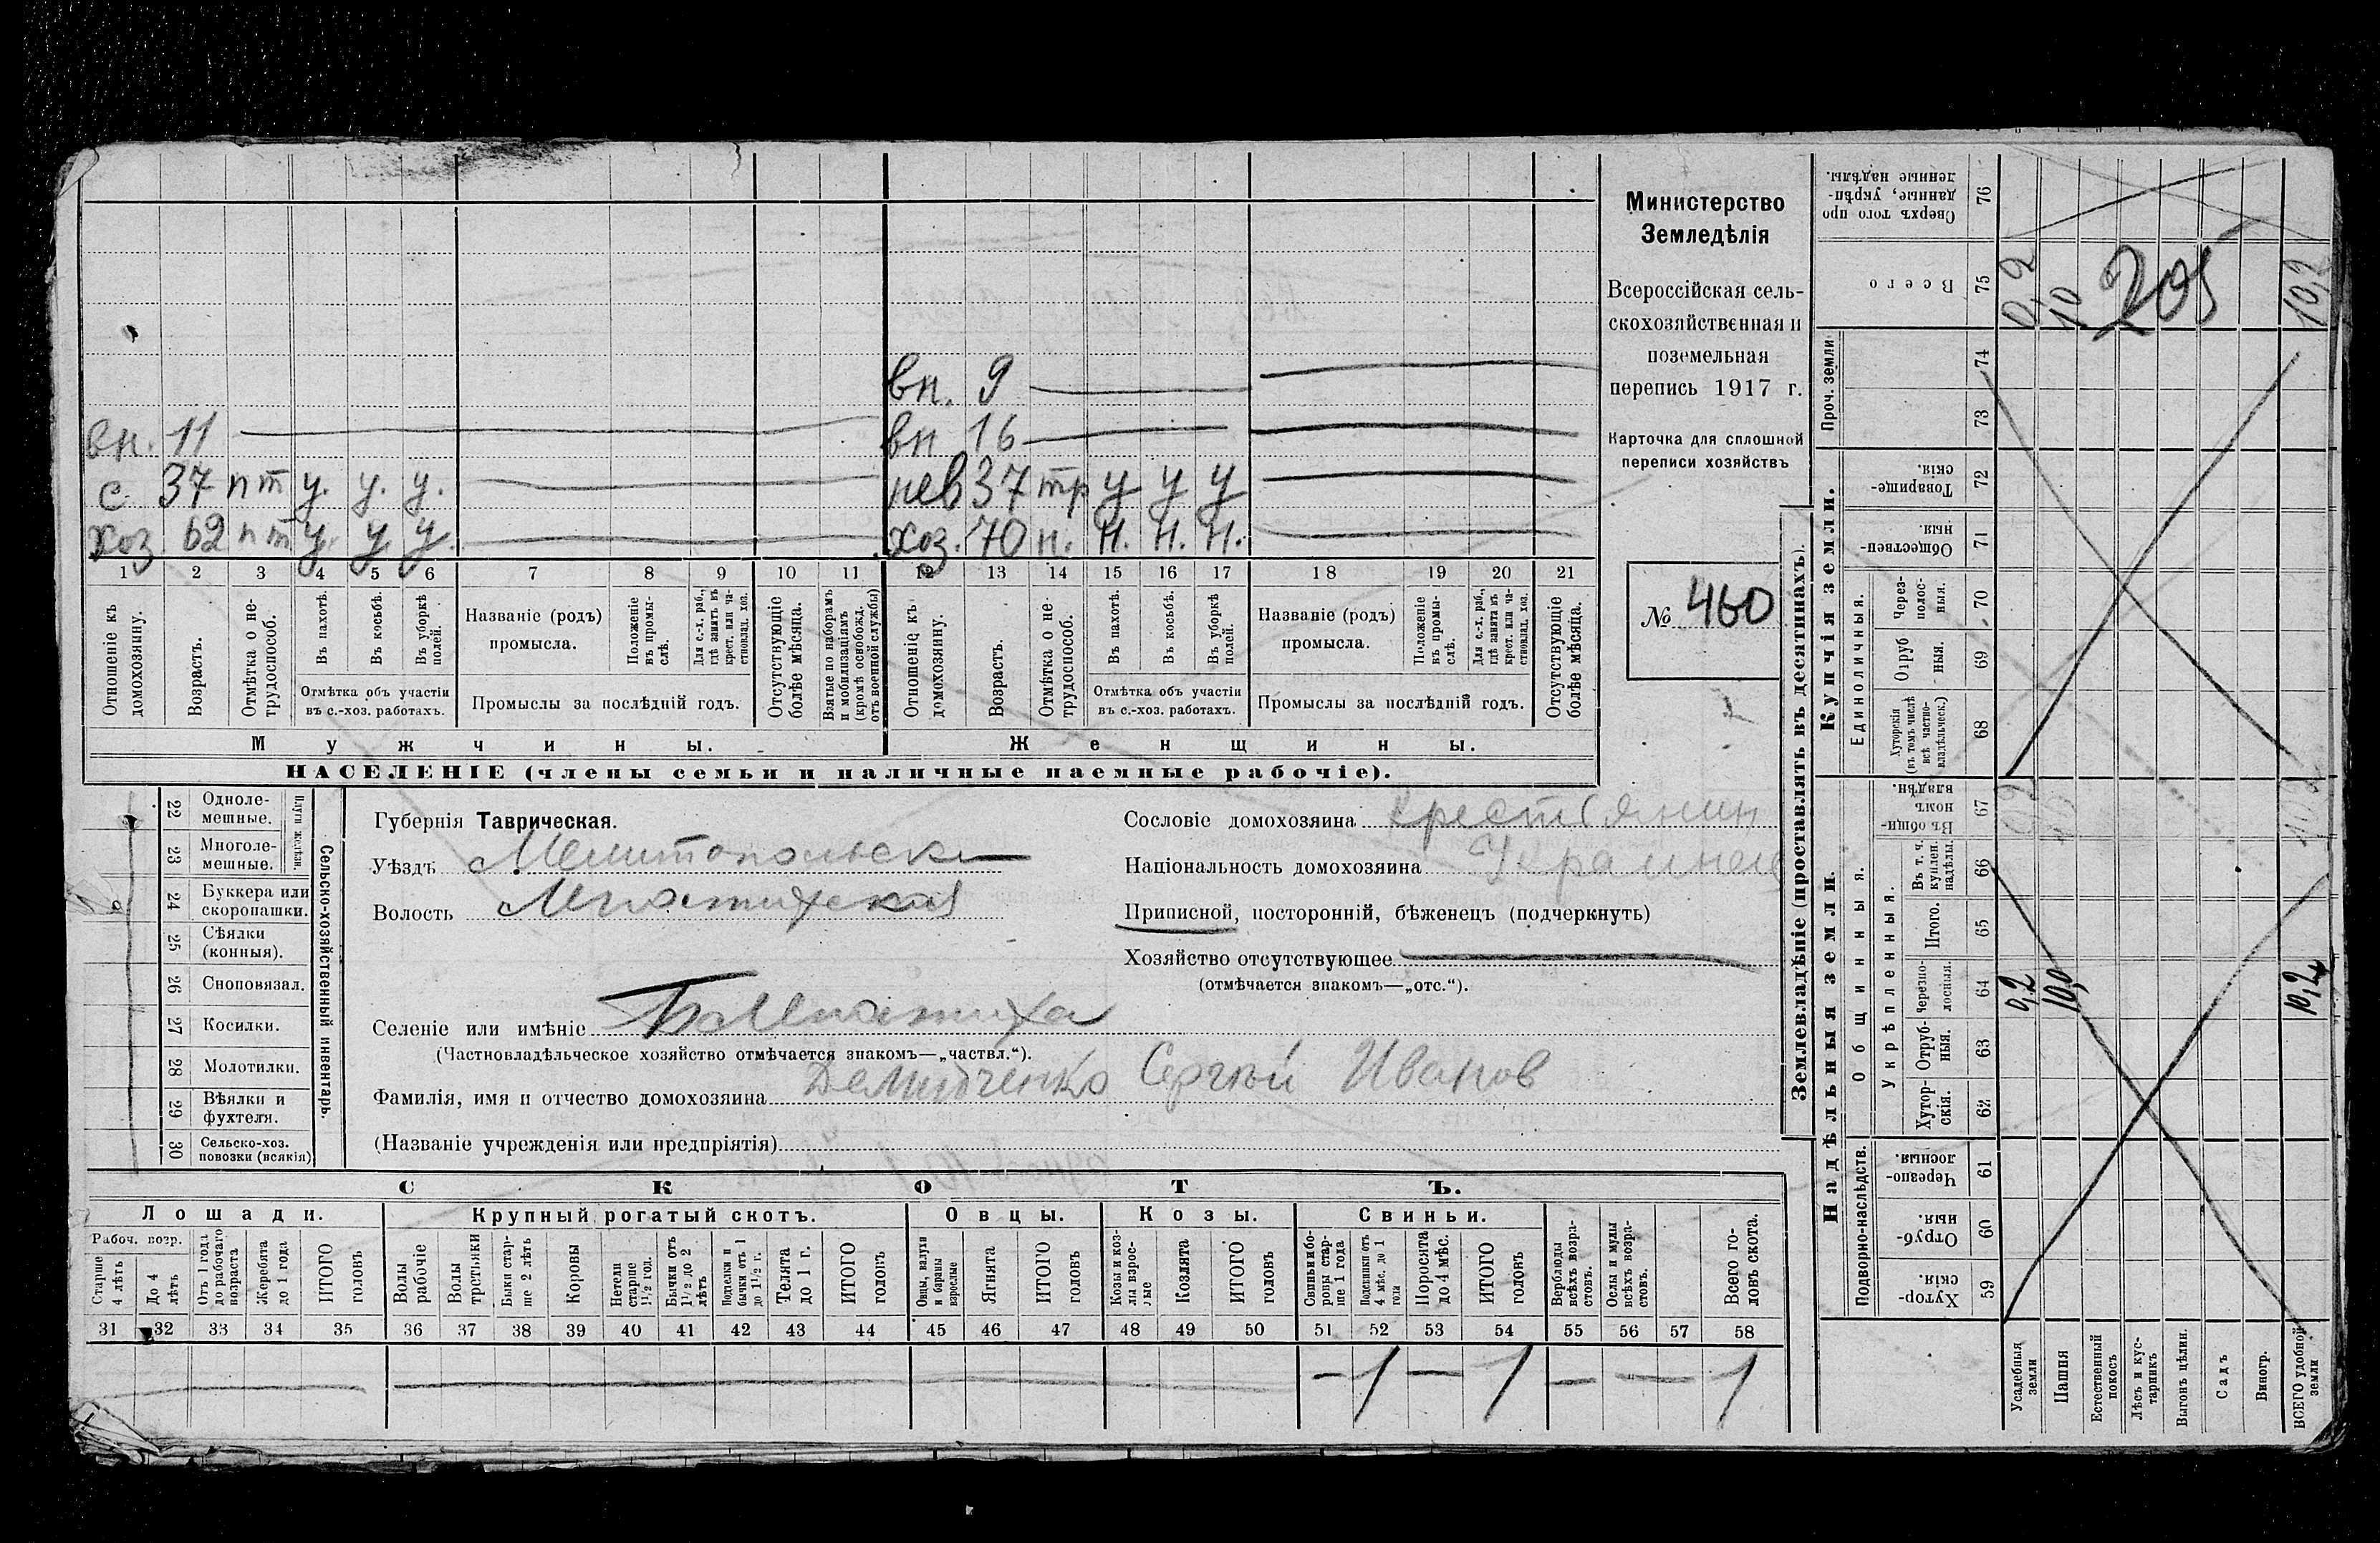 вн. 9
вн. 11 вн 16
с 37 пт у. у. у. нев 37 тр у у у
хоз 62 пт у. у у. хоз. 70 н. н. н. н.
1 2 3 4 5 6 7 8 9 10 11 12 13 14 15 16 17 18 19 20 21
Отношеніе къ домохозяину.
Возрастъ.
Отмѣтка о нетрудоспособ.
Въ пахотѣ.
Въ косьбѣ.
Въ уборкѣ полей.
Отмѣтка объ участіи
въ с.-хоз. работахъ.
Названіе (родъ)
промысла.
Положеніе въ промыслѣ.
Для с.-х. раб., гдѣ занятъ въ крест. или частновлад. хоз.
Промыслы за послѣдній годъ.
Отсутствующіе болѣе мѣсяца.
Взятые по наборамъ и мобилизаціямъ (кромѣ освобожд. отъ военной службы)
Отношеніе къ домохозяину.
Возрастъ.
Отмѣтка о нетрудоспособ.
Въ пахотѣ.
Въ косьбѣ.
Въ уборкѣ полей.
Отмѣтка объ участіи
въ с.-хоз. работахъ.
Названіе (родъ)
промысла.
Положеніе въ промыслѣ.
Для с.-х. раб., гдѣ занята въ крест. или частновлад. хоз.
Промыслы за послѣдній годъ.
Отсутствующіе болѣе мѣсяца.
Мужчины. Женщины.
НАСЕЛЕНІЕ (члены семьи и наличные наемные рабочіе).
Министерство
Земледѣлія
Всероссійская сель-
скохозяйственная и
поземельная
перепись 1917 г.
Карточка для сплошной
переписи хозяйствъ
№ 460
22 Одноле-
мешные.
23 Многоле-
мешные.
24 Буккера или
скоропашки.
25 Сѣялки
(конныя).
26 Сноповязал.
27 Косилки.
28 Молотилки.
29 Вѣялки и
фухтеля.
30 Сельско-хоз.
повозки (всякія)
Плуги желѣзн.
Сельско-хозяйственный инвентарь.
Губернія Таврическая.
Уѣздъ Мелитопольски
Волость
Селеніе или имѣніе
(Частновладѣльческое хозяйство отмѣчается знакомъ—„частвл.“).
Фамилія, имя и отчество домохозяина Демидченко Сергѣй Иванов
(Названіе учрежденія или предпріятія)
Сословіе домохозяина крестьянин
Національность домохозяина Украинец
Приписной, посторонній, бѣженецъ (подчеркнуть)
Хозяйство отсутствующее
(отмѣчается знакомъ—„отс.“).
СКОТЪ.
Лошади. Крупный рогатый скотъ. Овцы. Козы. Свиньи.
Рабоч. возр.
Старше 4 лѣтъ
До 4 лѣтъ
Отъ 1 года до рабочаго возраста
Жеребята до 1 года
ИТОГО головъ
Волы рабочіе
Волы третьяки
Быки старше 2 лѣтъ
Коровы
Нетели старше 1½ год.
Бычки отъ 1½ до 2 лѣтъ
Подтелки и бычки отъ 1 до 1½ г.
Телята до 1 г.
ИТОГО головъ
Овцы, валухи и бараны взрослые
Ягнята
ИТОГО головъ
Козы и козлы взрослые
Козлята
ИТОГО головъ
Свиньи и боровы старше 1 года
Подсвинки отъ 4 мѣс. до 1 года
Поросята до 4 мѣс.
ИТОГО головъ
Верблюды всѣхъ возрастовъ.
Ослы и мулы всѣхъ возрастовъ.
Всего головъ скота.
31 32 33 34 35 36 37 38 39 40 41 42 43 44 45 46 47 48 49 50 51 52 53 54 55 56 57 58
— 1 — 1 — — 1
Землевладѣніе (проставлять въ десятинахъ).
Сверхъ того проданные, укрѣпленные надѣлы. 76
Всего 75 0,2 10 205 10,2
Проч. земли 74 73
Купчія земли.
Товарищескія. 72
Общественныя. 71
Единоличныя.
Черезполосныя. 70
Отрубныя. 69
Хуторскія (въ томъ числѣ всѣ частновладѣльческ.) 68
Надѣльныя земли.
Общинныя.
Въ общинномъ владѣн. 67
Укрѣпленныя.
Въ т. ч. куплен. надѣлы. 66
Итого. 65
Черезполосныя. 64 0,2 10,0 10,2
Отрубныя. 63
Хуторскія. 62
Подворно-наслѣдств.
Черезполосныя. 61
Отрубныя. 60
Хуторскія. 59
Усадебныя земли
Пашня
Естественный покосъ
Лѣсъ и кустарникъ
Выгонъ цѣлин.
Садъ
Виногр.
ВСЕГО удобной земли